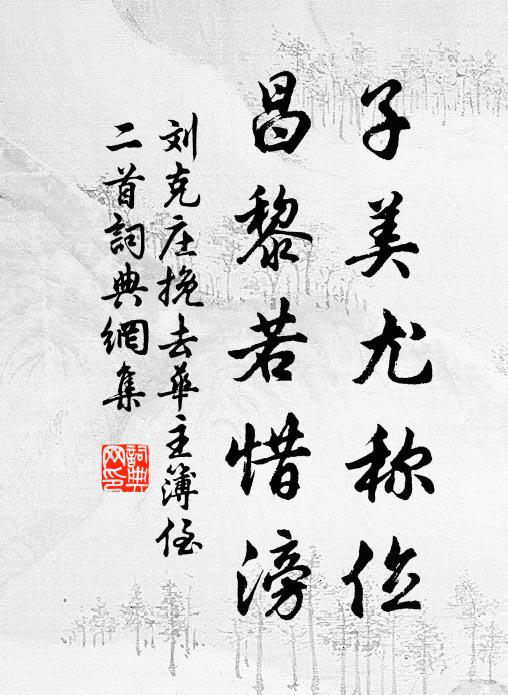 子美尤称位
昌黎若惜滂
刘克庄挽去华主簿侄
二首詞典網集
詞典網印